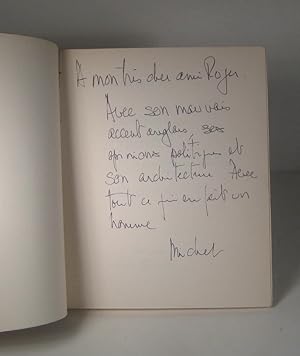 A mon très cher ami Roger
Avec son mauvais
accent anglais, ses
opinions politiques et
son architecture Avec
tout ce qui en fait un
homme
Michel